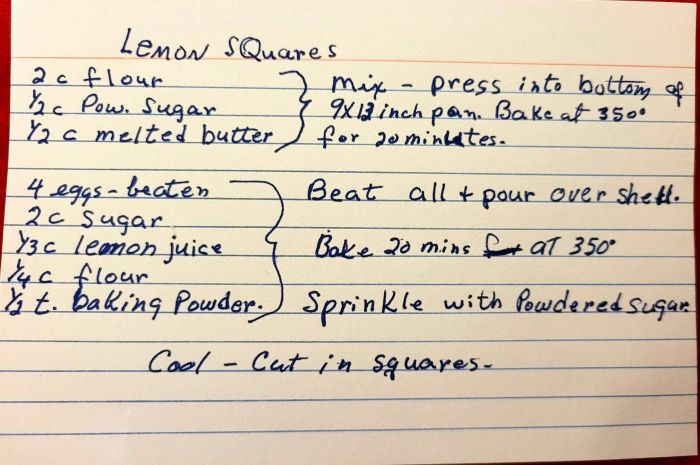 LEMON SQuares
2 c flour
1/2 c Pow. Sugar
1/2 c melted butter
mix - press into bottom of
9X13 inch pan. Bake at 350°
for 20 minutes.
4 eggs - beaten
2 c sugar
1/3 c lemon juice
1/4 c flour
1/2 t. baking Powder.
Beat all + pour over shell.
Bake 20 mins at 350°
Sprinkle with Powdered sugar
Cool - Cut in squares.